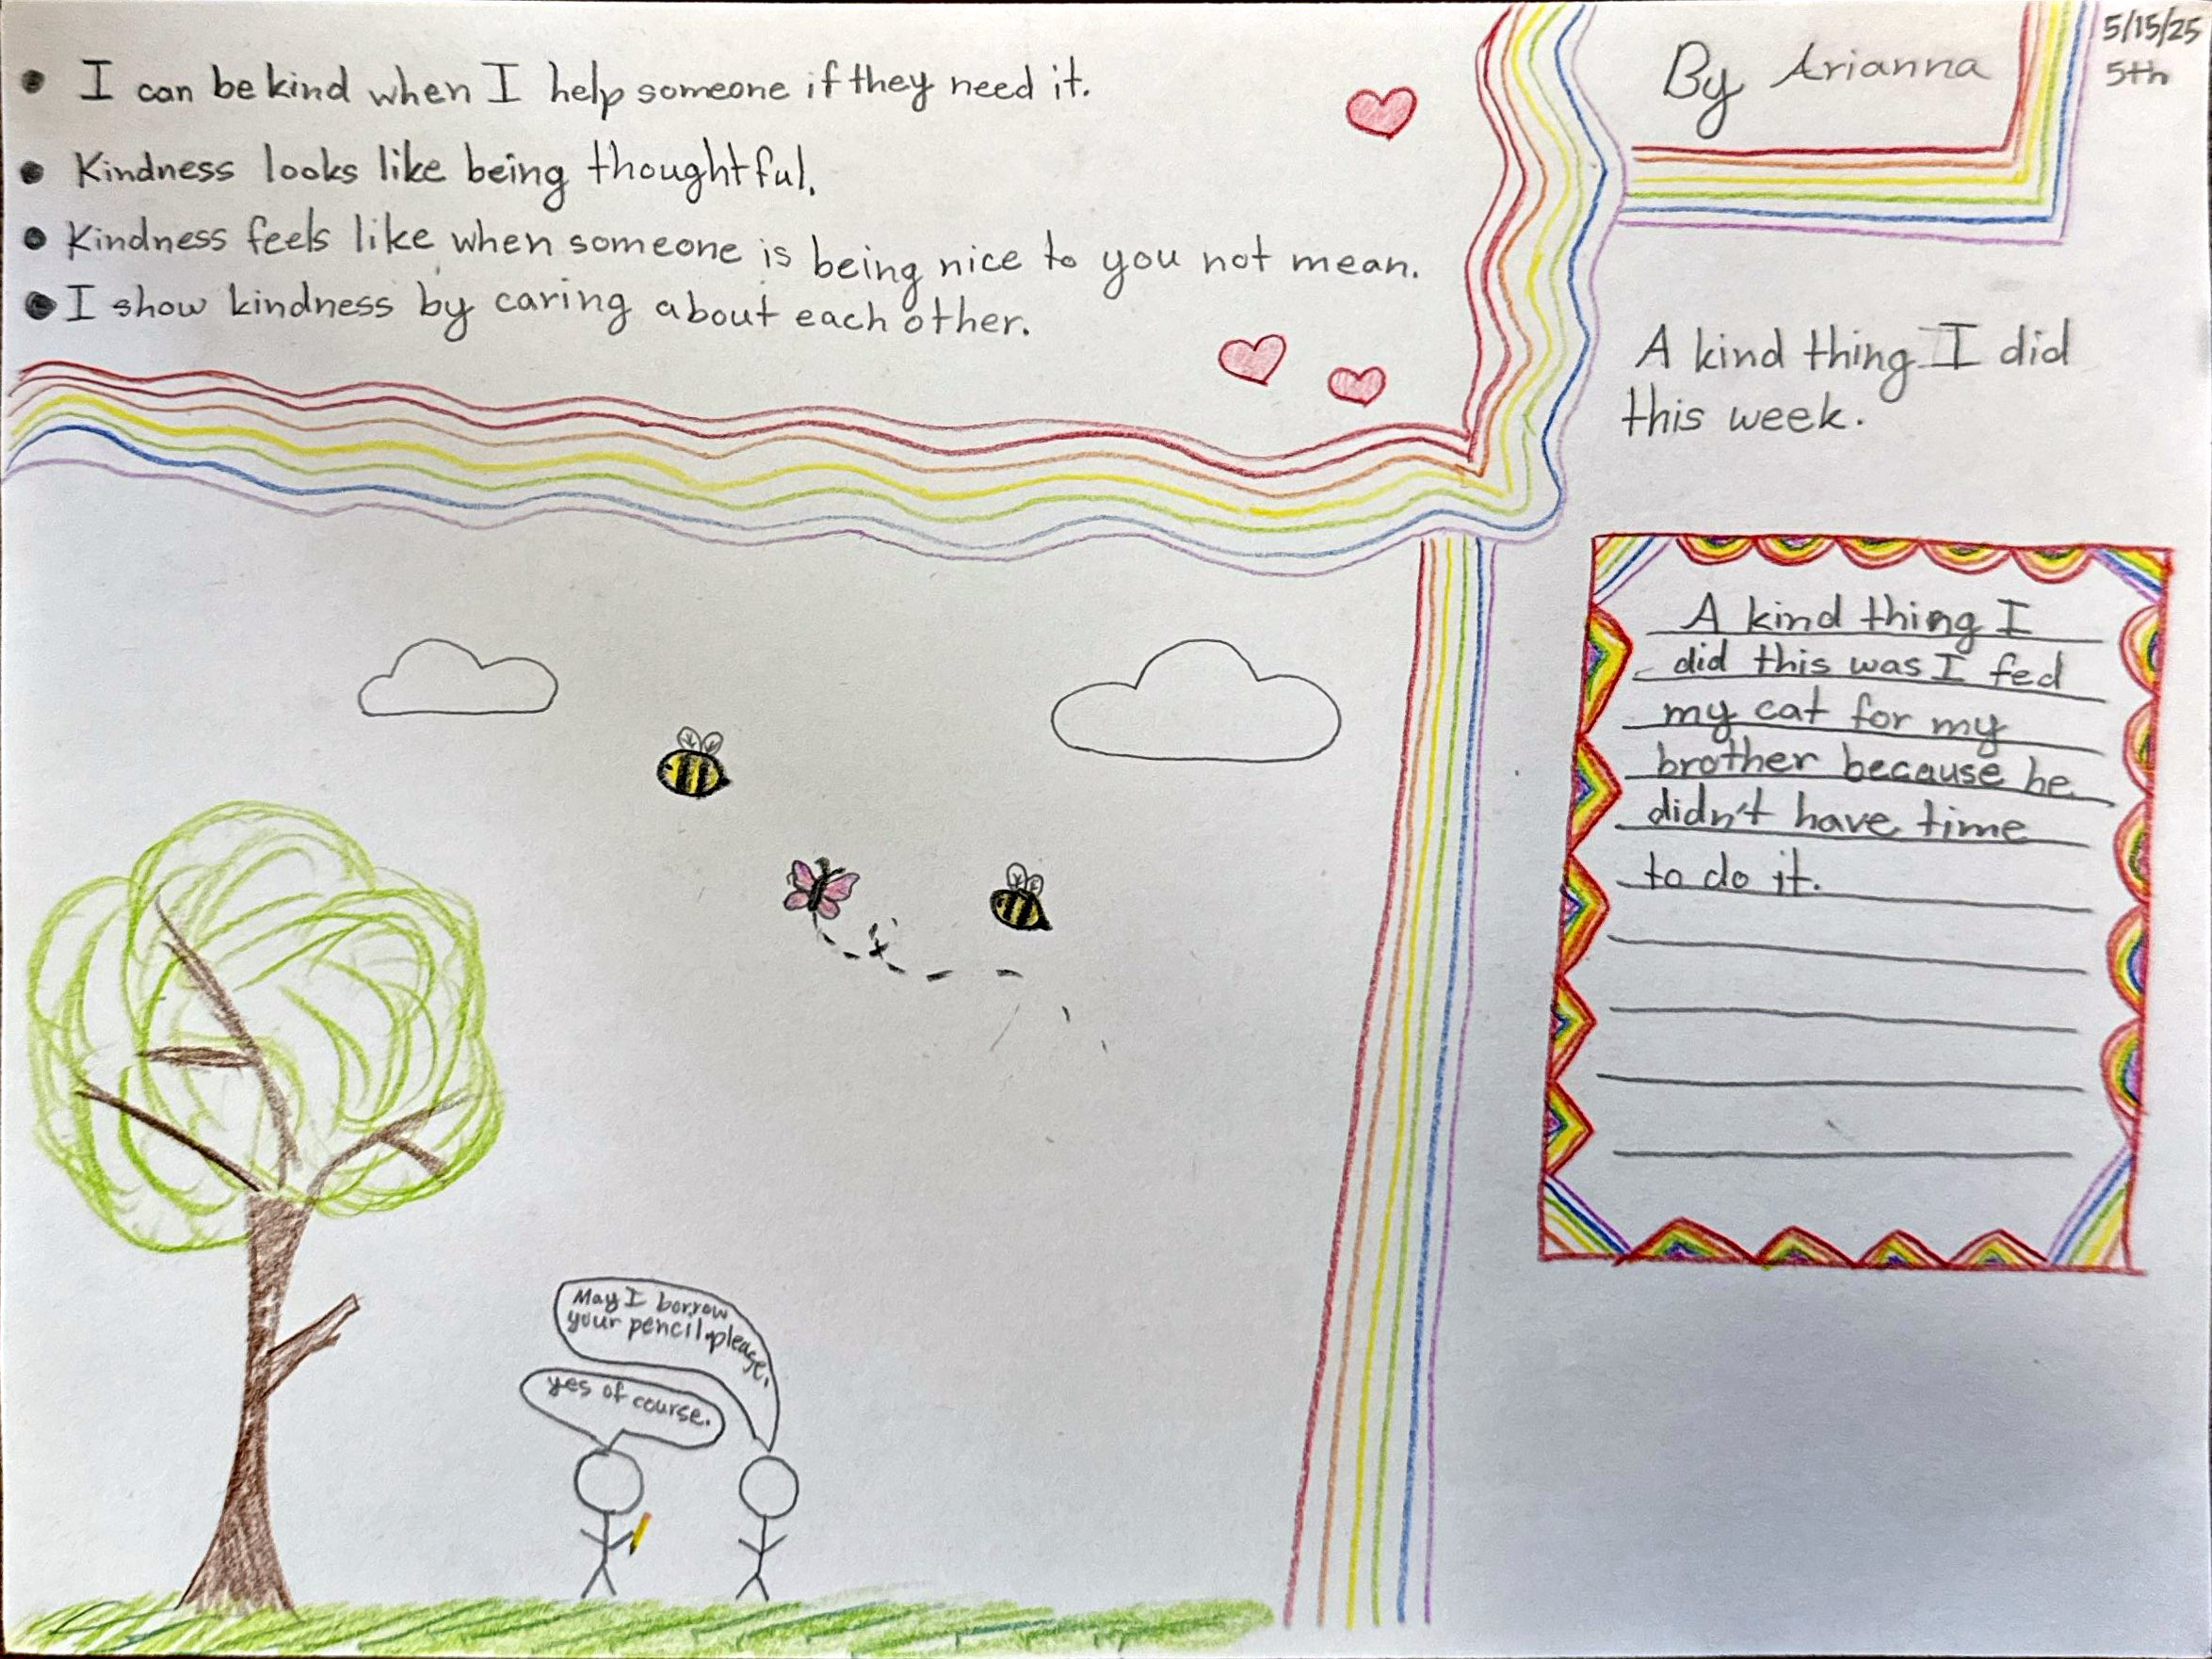 • I can be kind when I help someone if they need it.
• Kindness looks like being thoughtful.
• Kindness feels like when someone is being nice to you not mean.
• I show kindness by caring about each other.
By Arianna
5/15/25
5th
A kind thing I did
this week.
A kind thing I
did this was I fed
my cat for my
brother because he
didn't have time
to do it.
May I borrow
your pencil please.
yes of course.